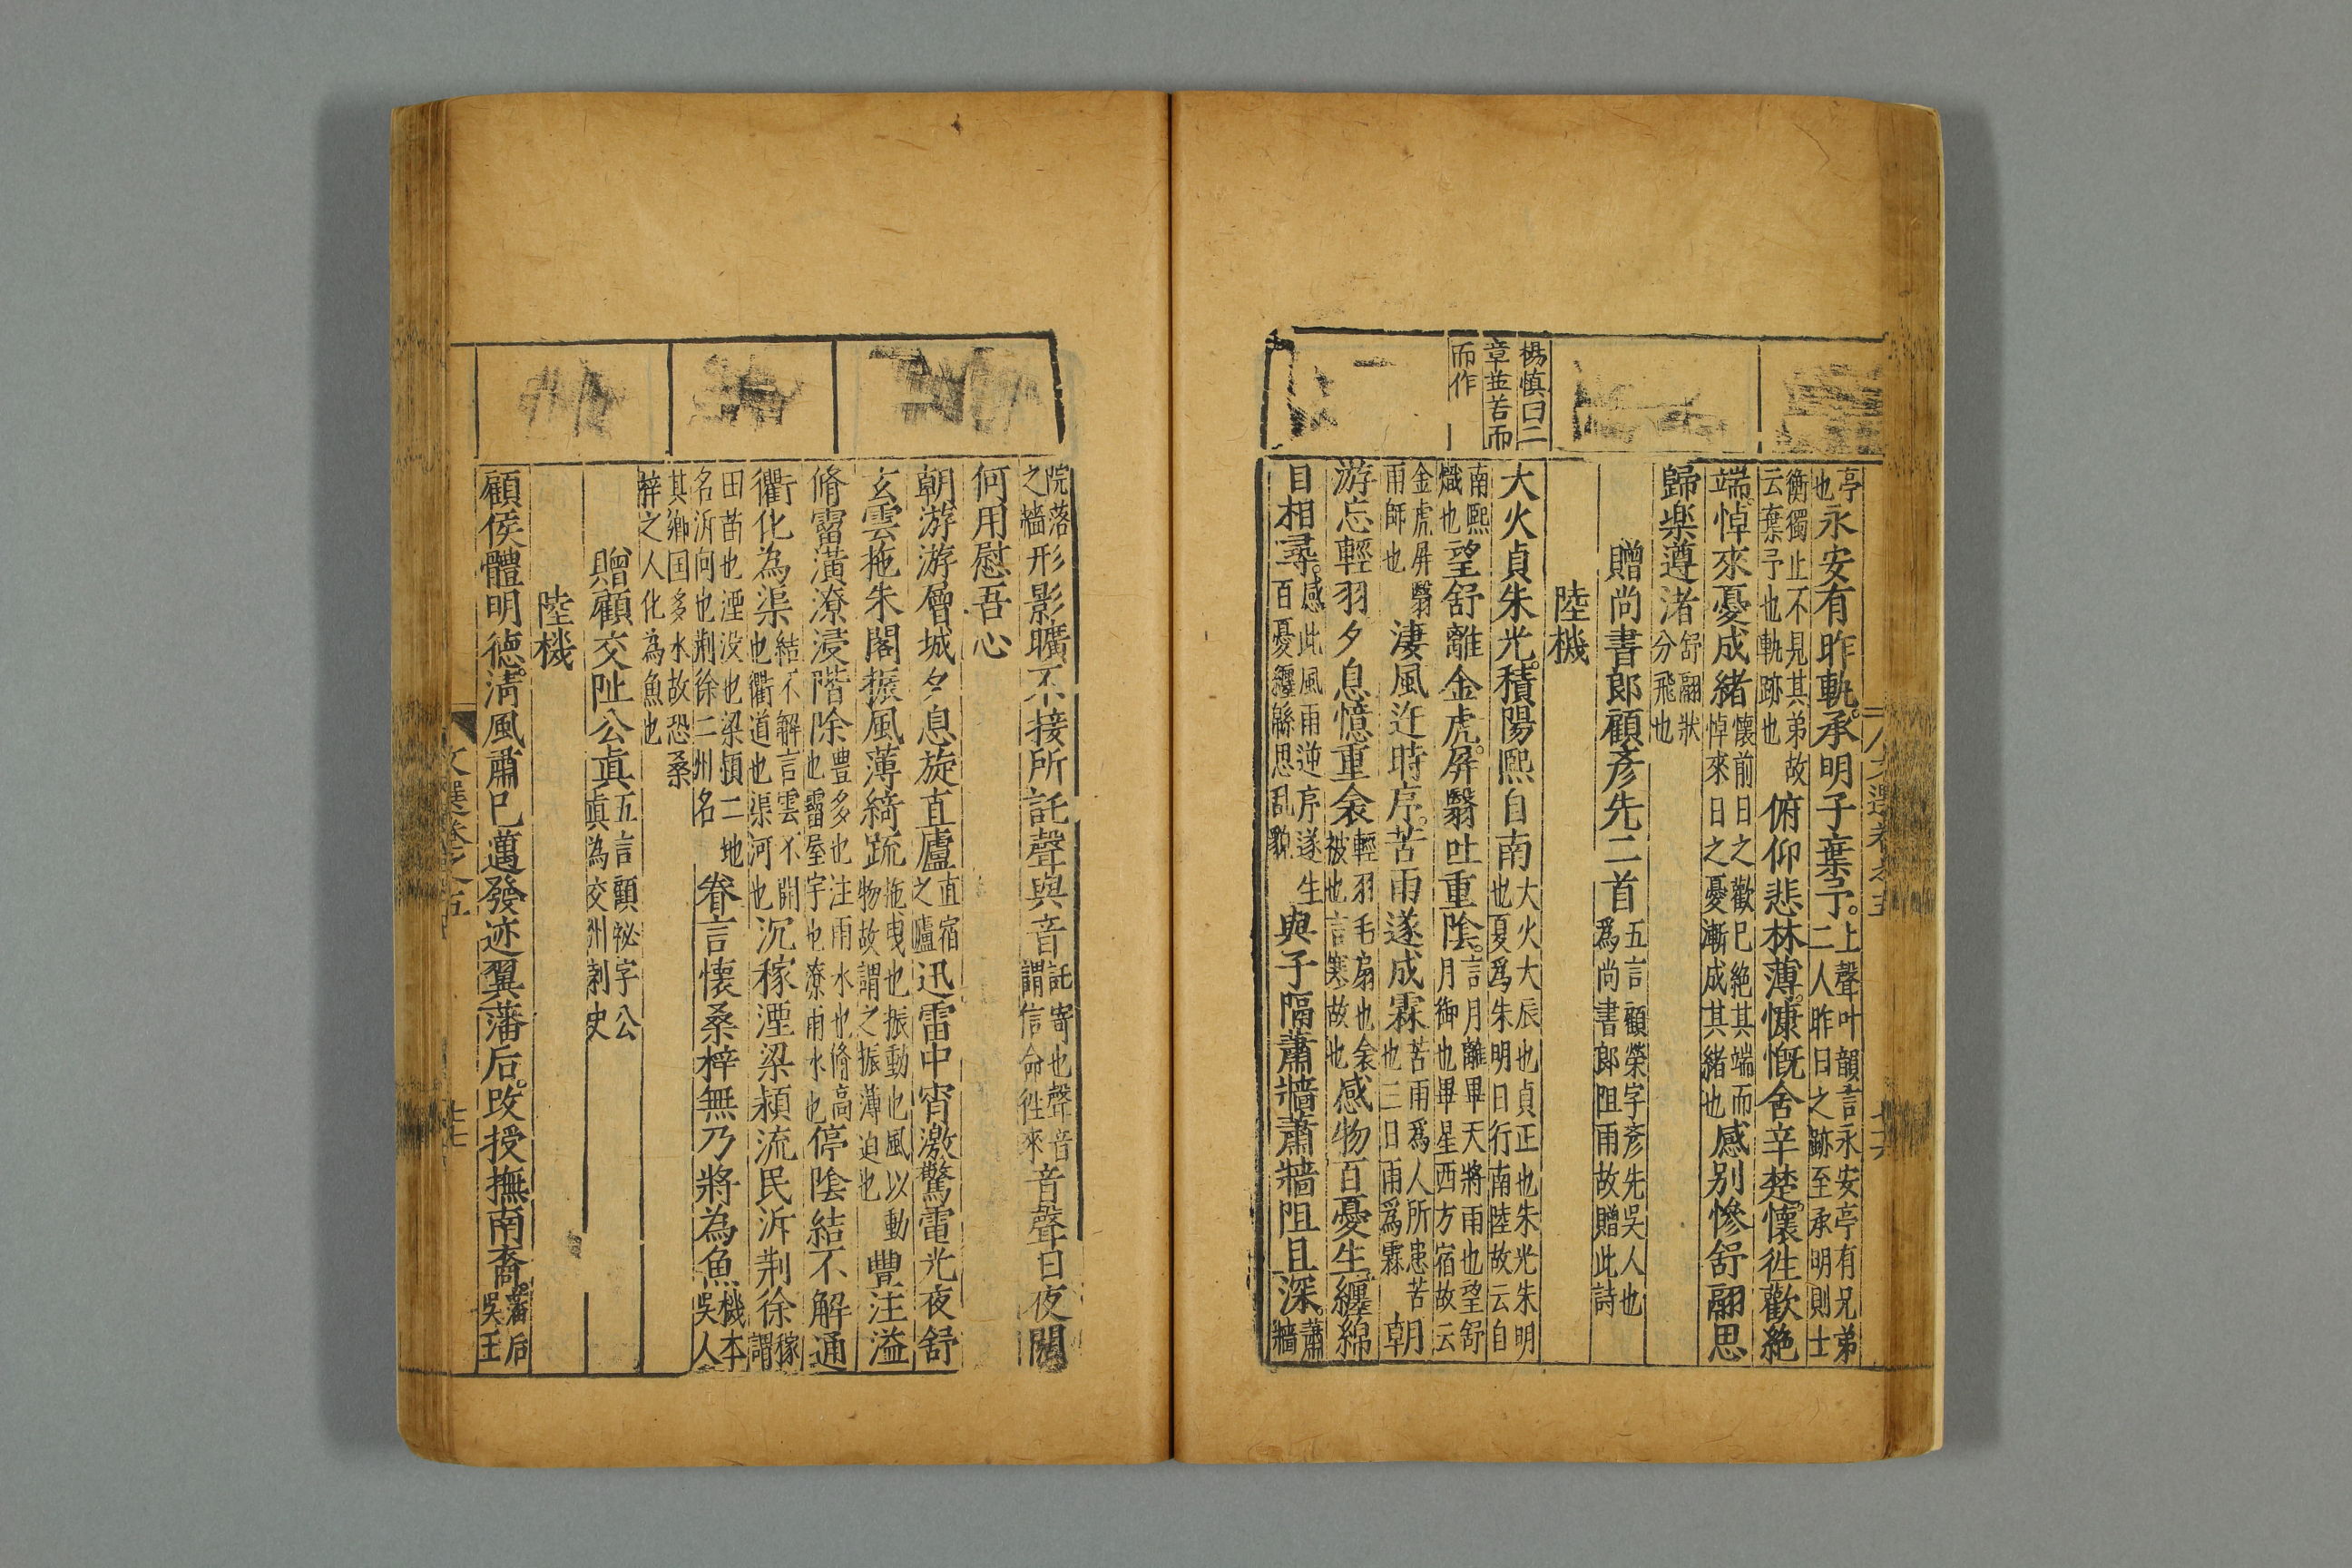 亭也永安有昨軌承明子棄予上聲叶韻言永安亭有兄弟二人昨日之跡至承明則士
衡獨止不見其弟故云棄予也軌跡也俯仰悲林薄慷慨含辛楚懷徃歡絶
端悼來憂成緒懷前日之歡已絶其端而悼來日之憂漸成其緒也感別慘舒翮思
歸樂遵渚舒翮狀分飛也
贈尚書郎顧彥先二首五言顧榮字彥先吳人也爲尚書郎阻雨故贈此詩
陸機
楊慎曰二
章並苦雨
而作
大火貞朱光積陽熙自南大火大辰也貞正也朱光朱明也夏爲朱明日行南陸故云自
南熙熾也望舒離金虎屏翳吐重陰言月離畢天將雨也望舒月御也畢星西方宿故云
金虎屏翳雨師也淒風迕時序苦雨遂成霖苦雨爲人所患苦也三日雨爲霖朝
游忘輕羽夕息憶重衾輕羽毛扇也衾被也言寒故也感物百憂生纏綿
自相尋感此風雨逆序遂生百憂纒緜思乱貌與子隔蕭牆蕭牆阻且深蕭牆
院落之墻形影曠不接所託聲與音託寄也聲音謂信命徃來音聲日夜闊
何用慰吾心
朝游游層城夕息旋直廬直宿之廬迅雷中宵激驚電光夜舒
玄雲拖朱閣振風薄綺疏拖曳也振動也風以動物故謂之振薄迫也豐注溢
脩霤潢潦浸階除豊多也注雨水也脩高也霤屋宇也潦雨水也停陰結不解通
衢化為渠結不解言雲不開也衢道也渠河也沉稼湮梁潁流民泝荆徐稼謂
田苗也湮没也梁頓二地名泝向也荆徐二州名眷言懷桑梓無乃將為魚機本吳人
其鄉囯多水故恐桑梓之人化為魚也
贈顧交阯公真五言顧祕字公眞為交州剌史
陸機
顧侯體明德清風肅已邁發迹翼藩后改授撫南裔藩后吳王
文選卷之五